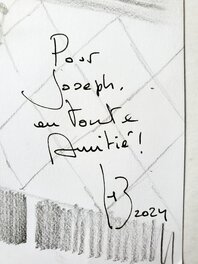 Pour
Joseph,
en toute
Amitié!
2024